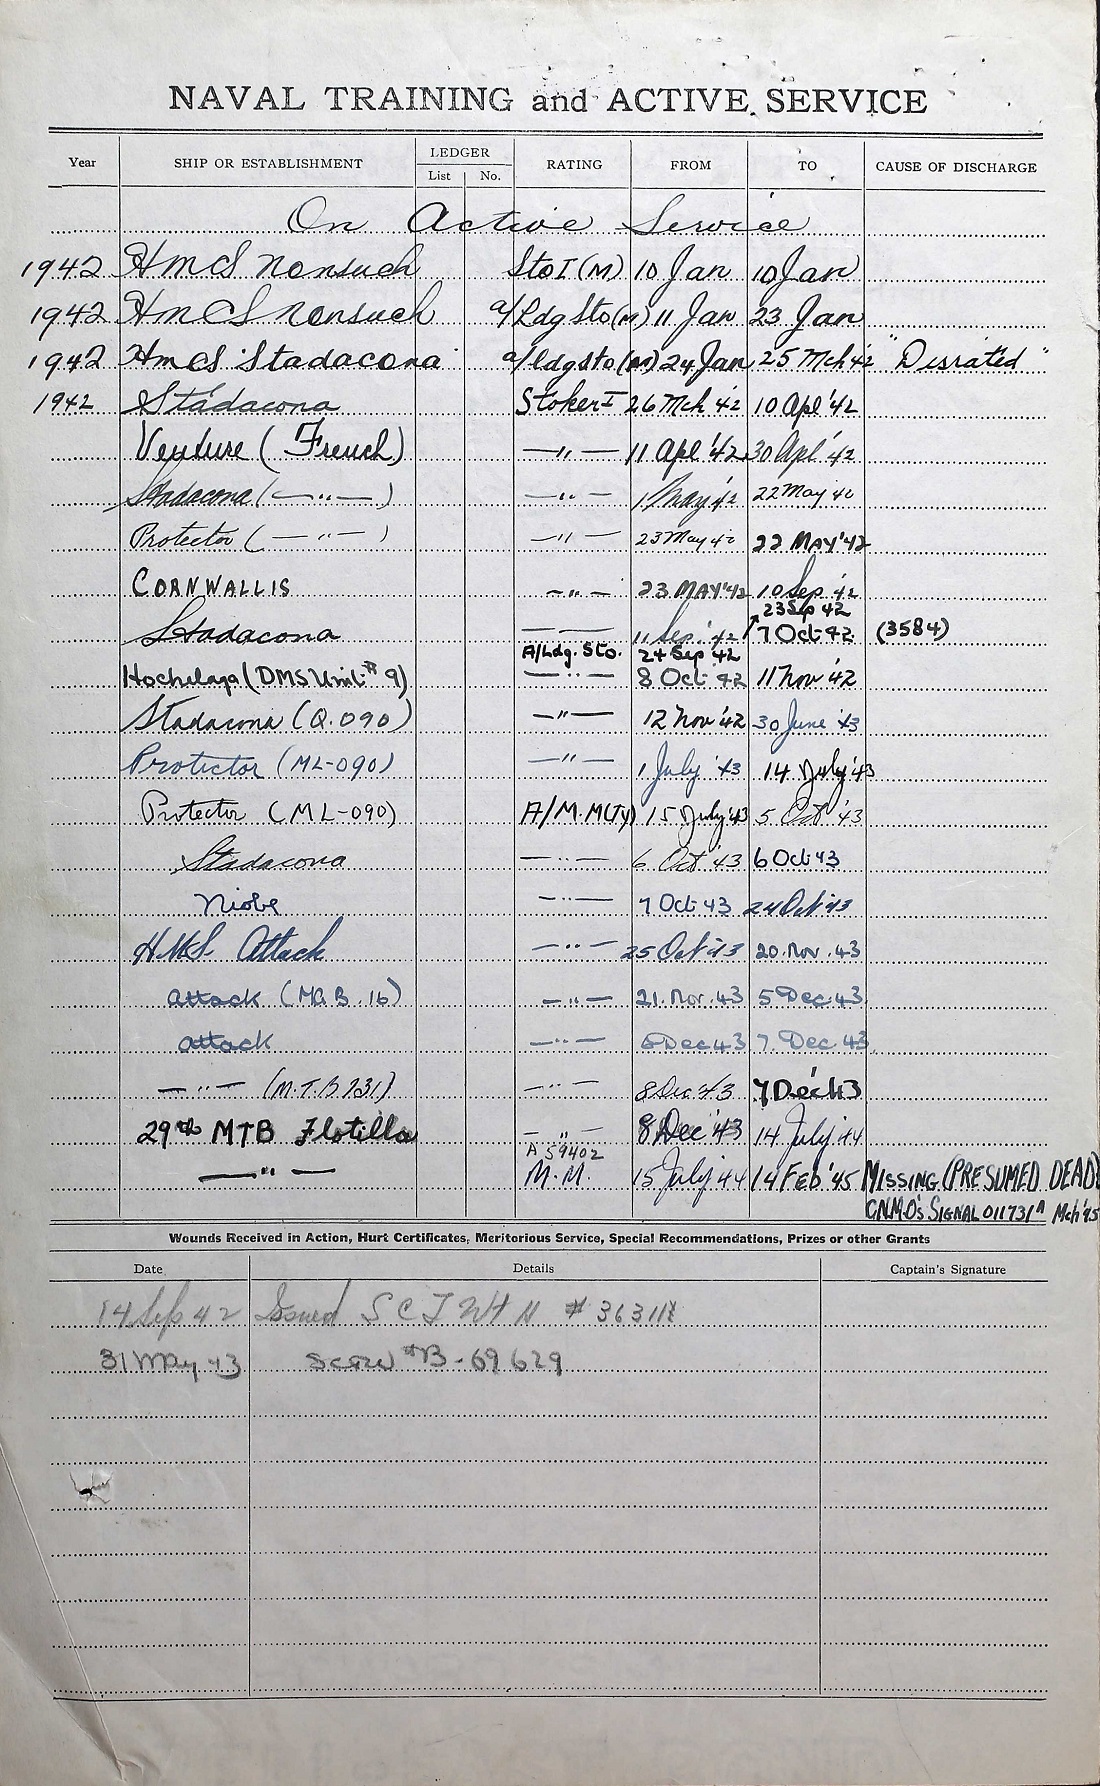 NAVAL TRAINING and ACTIVE SERVICE
Year SHIP OR ESTABLISHMENT LEDGER List No. RATING FROM TO CAUSE OF DISCHARGE
On Active Service
1942 HMCS Nonsuch Sto I (M) 10 Jan 10 Jan
1942 HMCS Nonsuch a/Ldg Sto (M) 11 Jan 23 Jan
1942 HMCS Stadacona a/ldg sto (M) 24 Jan 25 Mch 42 "Disrated"
1942 Stadacona Stoker I 26 Mch '42 10 Apl '42
Venture (French) —"— 11 Apl '42 30 Apl '42
Stadacona (—"—) —"— 1 May '42 22 May 42
Protector (—"—) —"— 23 May 42 22 MAY '42
CORNWALLIS —"— 23 MAY '42 10 Sep '42
23 Sep 42
Stadacona —"— 11 Sep '42 7 Oct 42 (3584)
A/Ldg. Sto. 24 Sep '42
Hochelaga (DMS Unit #9) —"— 8 Oct '42 11 Nov '42
Stadacona (Q.090) —"— 12 Nov '42 30 June '43
Protector (ML-090) —"— 1 July '43 14 July '43
Protector (ML-090) A/M.M(Ty) 15 July '43 5 Oct '43
Stadacona —"— 6 Oct '43 6 Oct 43
Niobe —"— 7 Oct 43 24 Oct '43
H.M.S. Attack —"— 25 Oct '43 20. Nov. 43
Attack (MG.B. 16) —"— 21. Nov. 43 5 Dec 43
Attack —"— 6 Dec 43 7. Dec 43.
—"— (M.T.B 231) —"— 8 Dec '43 7 Dec '43
29th MTB Flotilla —"— 8 Dec '43 14 July '44
A 59402
—"— M.M. 15 July '44 14 FEB '45 MISSING (PRESUMED DEAD)
C.N.M.O's SIGNAL 011731A Mch '45
Wounds Received in Action, Hurt Certificates, Meritorious Service, Special Recommendations, Prizes or other Grants
Date Details Captain's Signature
14 Sep 42 Issued S C # 36311
31 May 43 #B-69629